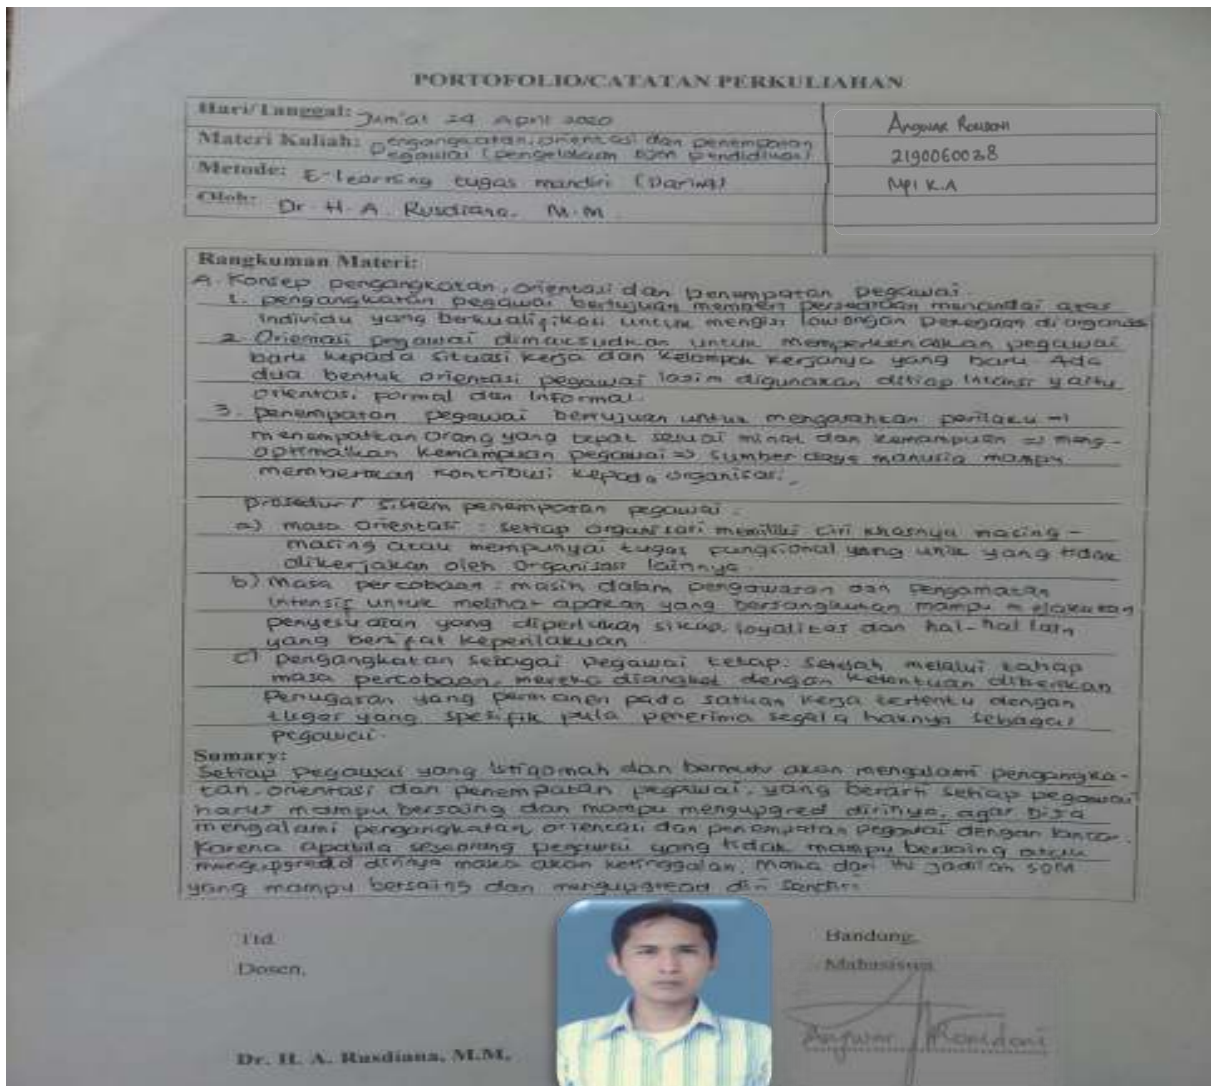 PORTOFOLIO/CATATAN PERKULIAHAN
Hari/Tanggal: Jum'at 24 April 2020
Materi Kuliah: pengangkatan, orientasi dan penempatan
pegawai (pengelolaan SDM pendidikan)
Metode: E-learning tugas mandiri (Daring)
Oleh: Dr. H. A. Rusdiana, M.M.
2190060028
MPI K.A
Rangkuman Materi:
A. Konsep pengangkatan, orientasi dan penempatan pegawai.
1. pengangkatan pegawai bertujuan memberi persediaan menandai atas
individu yang berkualifikasi untuk mengisi lowongan pekerjaan di organisasi
2. Orientasi pegawai dimaksudkan untuk memperkenalkan pegawai
baru kepada situasi kerja dan kelompok kerjanya yang baru. Ada
dua bentuk orientasi pegawai lazim digunakan ditiap intansi yaitu
orientasi formal dan Informal.
3. penempatan pegawai bertujuan untuk mengarahkan perilaku =>
menempatkan orang yang tepat sesuai minat dan kemampuan => meng-
optimalkan kemampuan pegawai => sumber daya manusia mampu
memberikan kontribusi kepada organisasi.
prosedur / sistem penempatan pegawai :
a) masa orientasi : setiap organisasi memiliki ciri khasnya masing -
masing atau mempunyai tugas fungsional yang unik yang tidak
dikerjakan oleh organisasi lainnya.
b) masa percobaan : masih dalam pengawasan dan pengamatan
intensif untuk melihat apakah yang bersangkutan mampu melakukan
penyesuaian yang diperlukan sikap, loyalitas dan hal-hal lain
yang bersifat keperilakuan
c) pengangkatan sebagai pegawai tetap: setelah melalui tahap
masa percobaan, mereka diangkat dengan ketentuan diberikan
Penugasan yang permanen pada satuan kerja tertentu dengan
tugas yang spesifik pula penerima segala haknya sebagai
pegawai.
Sumary:
Setiap pegawai yang istiqomah dan bermutu akan mengalami pengangka-
tan, orientasi dan penempatan pegawai, yang berarti setiap pegawai
harus mampu bersaing dan mampu mengupgred dirinya, agar bisa
mengalami pengangkatan, orientasi dan penempatan pegawai dengan lancar.
Karena apabila seseorang pegawai yang tidak mampu bersaing atau
dirinya maka akan ketinggalan. Maka dari itu jadilah SDM
yang mampu bersaing dan mengupgread diri sendiri.
Ttd.
Dosen,
Dr. H. A. Rusdiana, M.M.
Bandung,
Mahasiswa